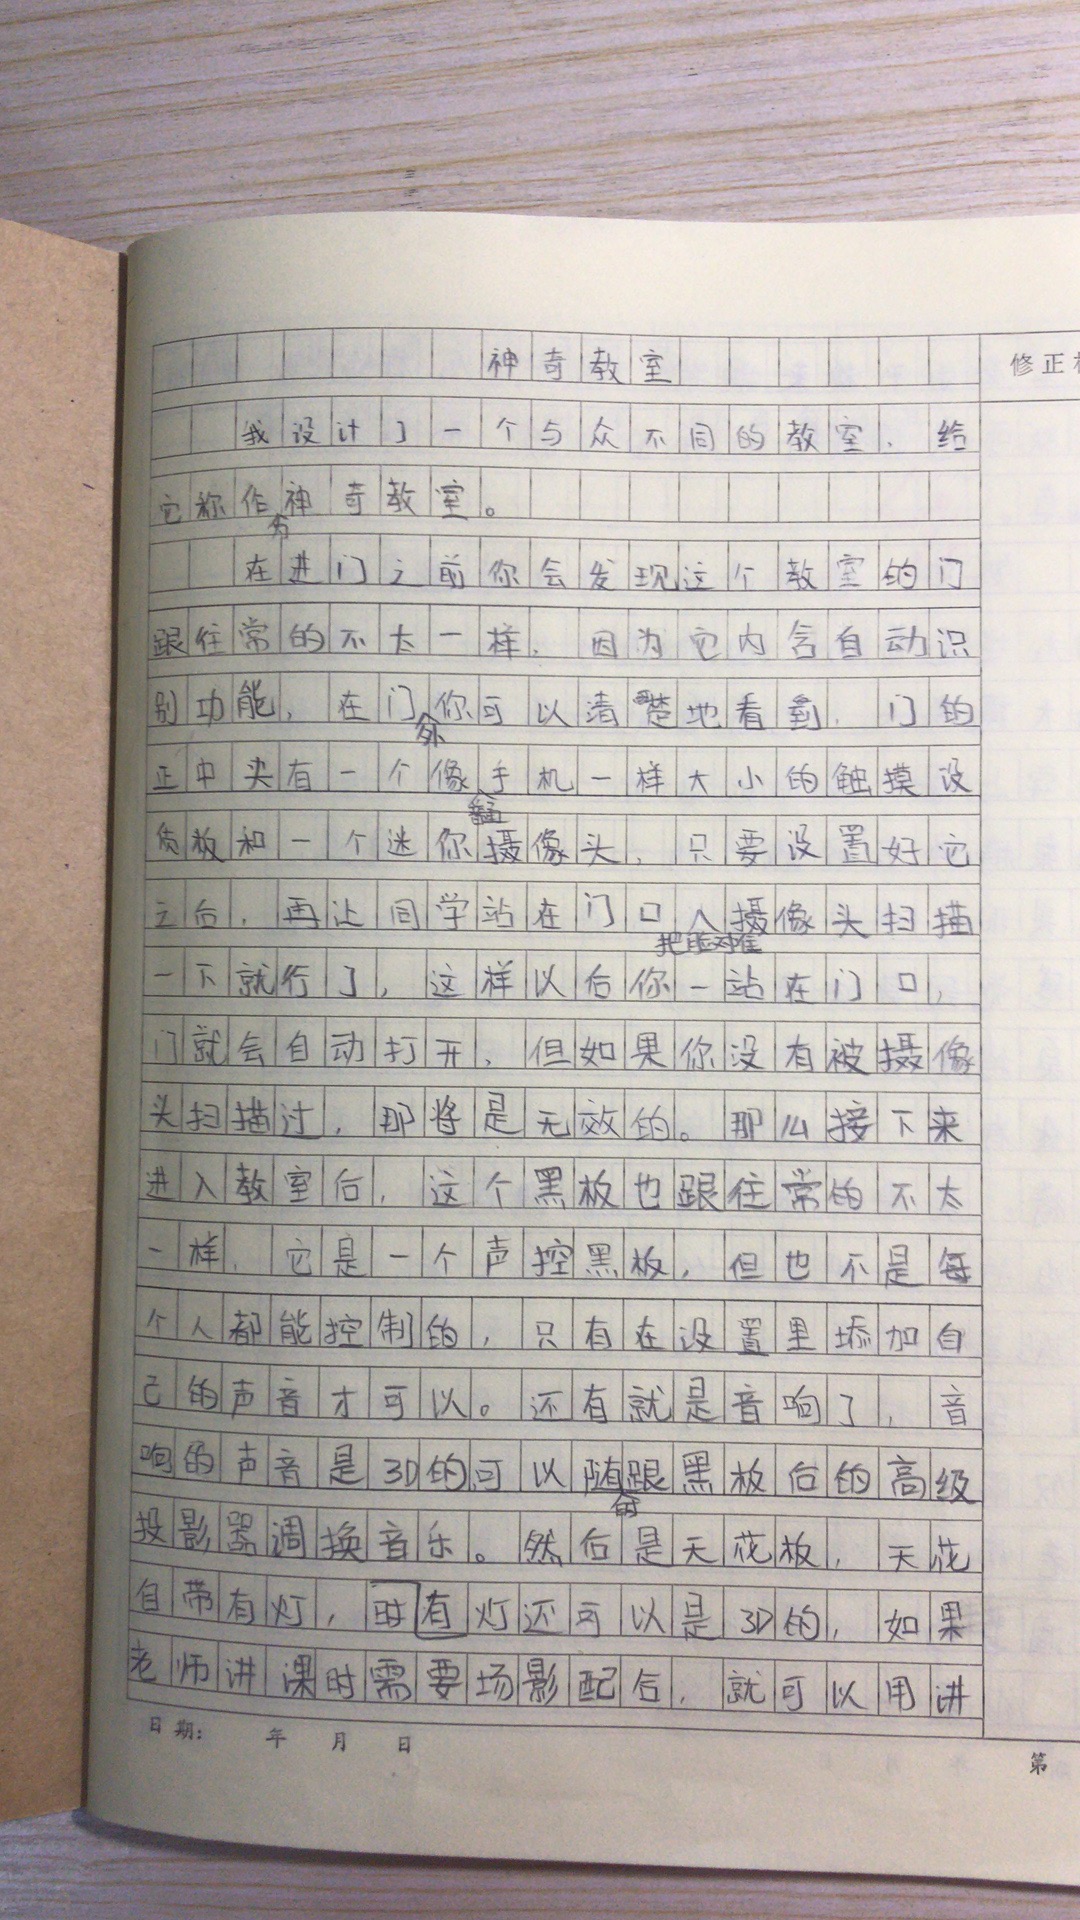 神奇教室
修正
我设计了一个与众不同的教室，给
它称作神奇教室。
为
在进门之前你会发现这个教室的门
跟往常的不太一样，因为它内含自动识
别功能，在门你可以清楚地看到，门的
外
正中央有一个像手机一样大小的触摸设
板和一个迷你摄像头，只要设置好它
之后，再让同学站在门口人摄像头扫描
把脸对准
一下就行了，这样以后你一站在门口，
门就会自动打开，但如果你没有被摄像
头扫描过，那将是无效的。那么接下来
进入教室后，这个黑板也跟往常的不太
一样，它是一个声控黑板，但也不是每
个人都能控制的，只有在设置里添加自
己的声音才可以。还有就是音响了，音
响的声音是3D的可以随跟黑板后的高级
投影器调换音乐。然后是天花板，天花
自带有灯，时有灯还可以是3D的，如果
老师讲课时需要场影配后，就可以用讲
日期： 年 月 日
第